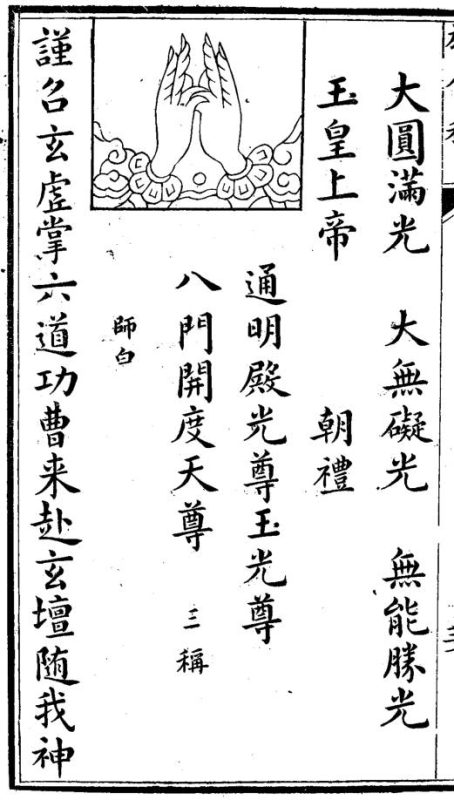 大圓滿光　大無礙光　無能勝光
玉皇上帝　朝禮
通明殿光尊玉光尊
八門開度天尊　三稱
師白
謹召玄虛掌六道功曹来赴玄壇随我神